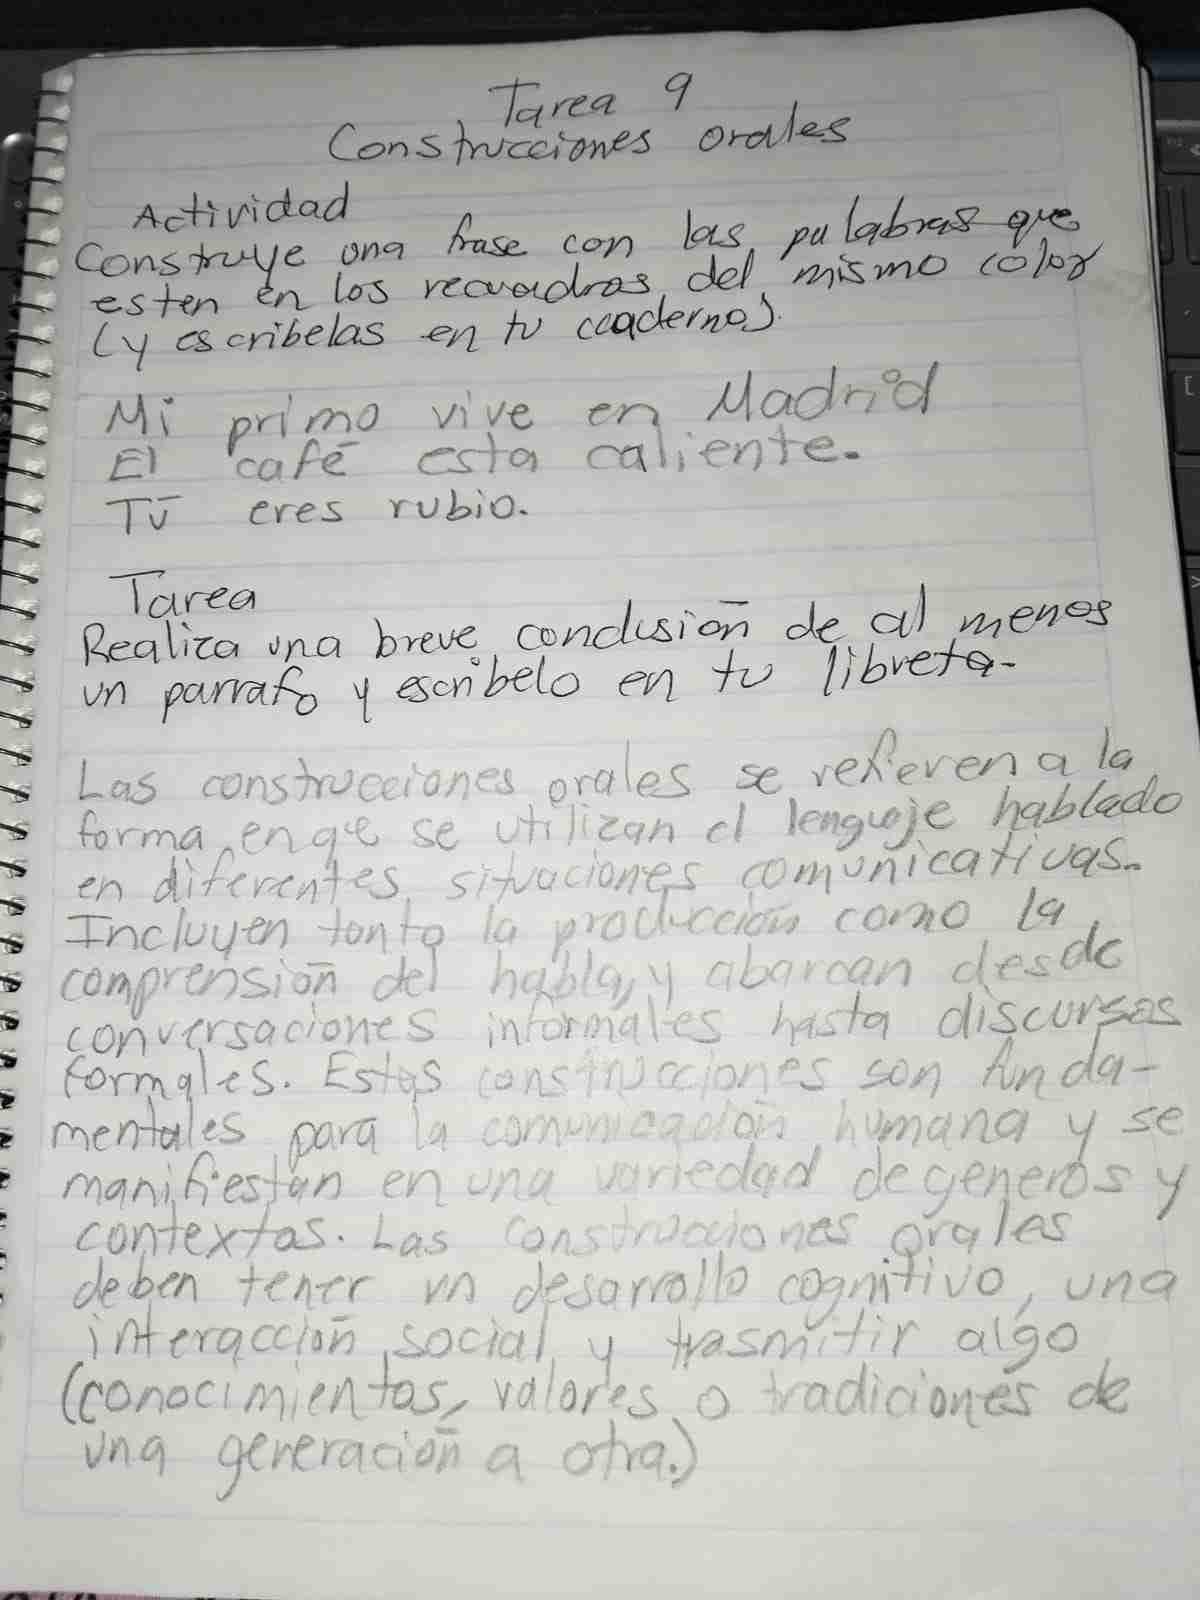 Tarea 9
Construcciones orales
Actividad
Construye una frase con las palabras que
esten en los recuadros del mismo color
(y escribelas en tu cuaderno).
Mi primo vive en Madrid
El café esta caliente.
Tú eres rubio.
Tarea
Realiza una breve conclusión de al menos
un parrafo y escribelo en tu libreta.
Las construcciones orales se refieren a la
forma en qe se utilizan el lenguaje hablado
en diferentes situaciones comunicativas.
Incluyen tanto la producción como la
comprensión del habla, y abarcan desde
conversaciones informales hasta discursos
formales. Estas construcciones son funda-
mentales para la comunicación humana y se
manifiestan en una variedad de generos y
contextos. Las construcciones orales
deben tener un desarrollo cognitivo, una
interacción social y trasmitir algo
(conocimientos, valores o tradiciones de
una generación a otra.)